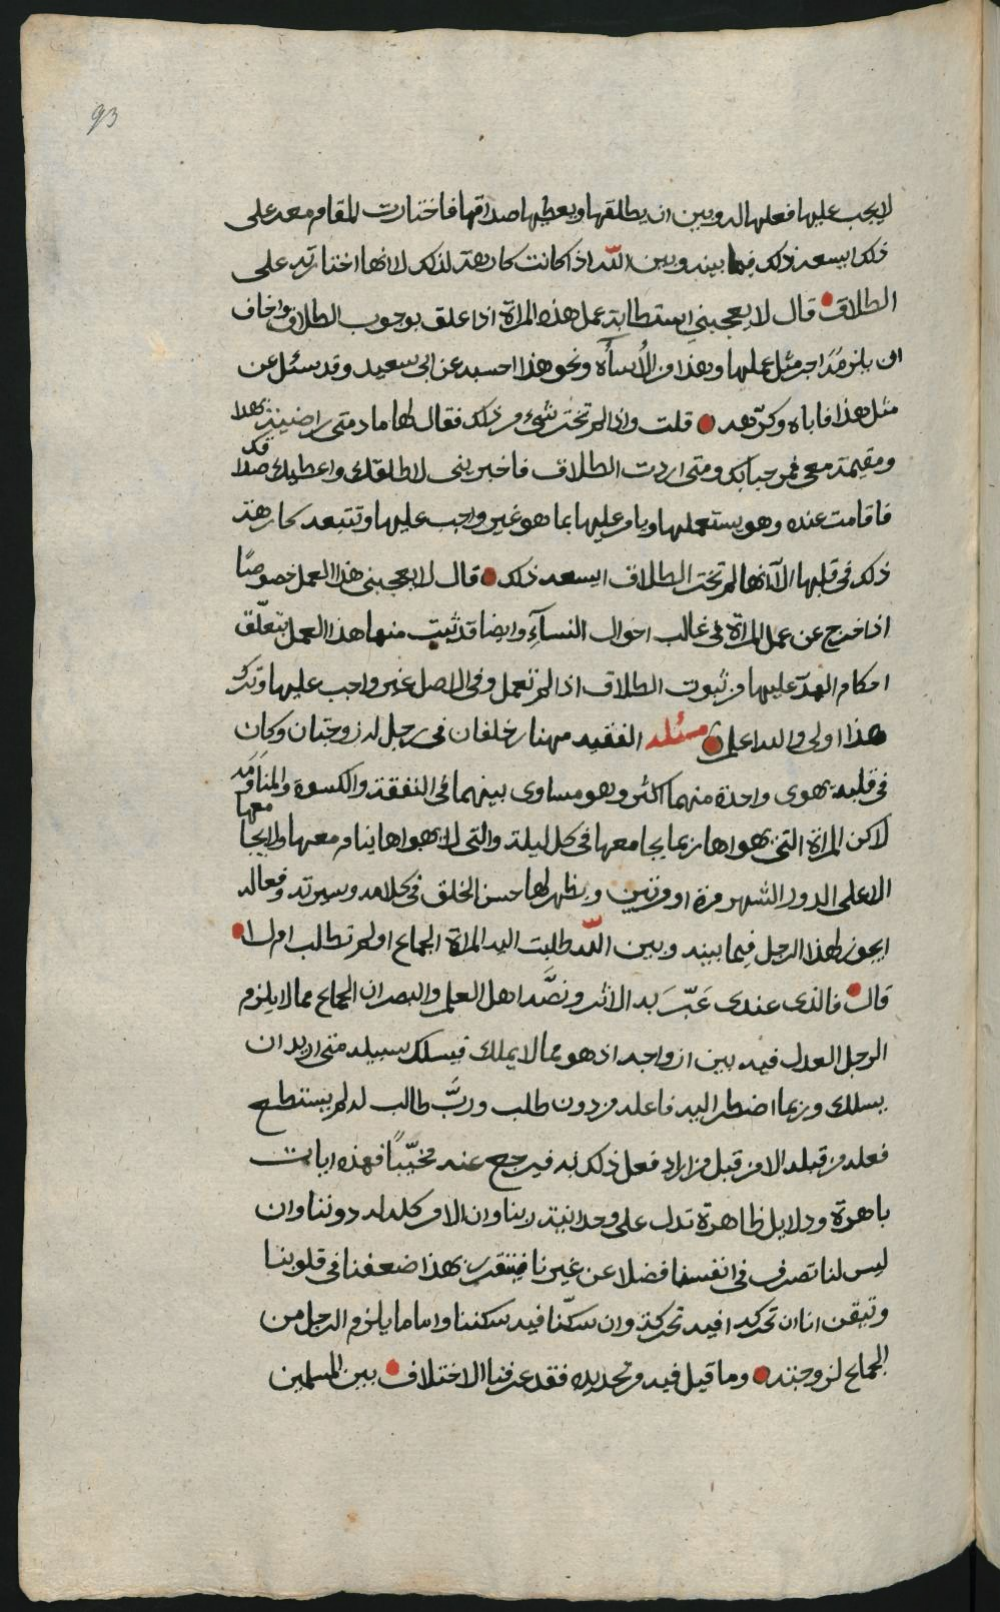 93
لايجب عليها فعلها له وبين ان يطلقها ويعطيها صداقها فاختارت المقام معه على
ذلك ايسعه ذلك فيما بينه وبين الله اذا كانت كارهة لذلك الا انها اختارته على
الطلاق قال لا يعجبني استطابة عمل هذه المراة اذا علق بوجوب الطلاق واخاف
ان يلزمه اجر مثل عملها وهذا من الأسأه ونحو هذا احسبه عن ابي سعيد وقد سئل عن
مثل هذا فاباه وكرّهه قلت واذا لم تختر شيء من ذلك فقال لها ما دمتي راضية بهذا
ومقيمة معي فمرحبا بك ومتى اردت الطلاق فاخبريني لاطلقك واعطيك صداقك
فاقامت عنده وهو يستعملها ويامر عليها بما هو غير واجب عليها وتتبعه كارهة
ذلك في قلبها الا انها لم تختر الطلاق ايسعه ذلك قال لا يعجبني هذا العمل خصوصًا
اذا خرج عن عمل المراة في غالب احوال النسآء وايضا قد ثبت منها هذا العمل بتعلّق
احكام العدة عليها من ثبوت الطلاق اذا لم تعمل وفي الاصل غير واجب عليها وترك
هذا اولى والله اعلم مسئله الفقيه مهنا بن خلفان في رجل له زوجتان وكان
في قلبه يهوى واحدة منهما اكثر وهو مساوي بينهما في النفقة والكسوة والمنامَة
لاكن المراة التي يهواها ربما يجامعها في كل ليلة والتي لا يهواها ينام معها ولا يجامعها
الا على الدور الشهر مرة او مرتين ويظهر لها حسن الخلق في كلامه وسيرته وفعاله
ايجوز لهذا الرجل فيما بينه وبين الله طلبت اليه المراة الجماع او لم تطلب ام لا
قال فالذي عندي عَبّرَ به الاثر ونصَّه اهل العلم والبصر ان الجماع مما لا يلزم
الرجل العدل فيه بين ازواجه اذ هو مما لا يملك فيسلك سبيله متى اريد ان
يسلك وربما اضطر اليه فاعله من دون طلب وربَّ طالب له لم يستطع
فعله من قبله الا من قبل من اراد فعل ذلك به فيرجع عنه مخيّبًا فهذه ايات
باهرة ودلايل ظاهرة تدل على وحدانية ربنا وان الامر كله له دوننا وان
ليس لنا تصرف في انفسنا فضلا عن غيرنا فنتقرب بهذا ضعفنا في قلوبنا
وتيقن انا ان تحركه افيد تحركة وان سكّنا فيه سكننا واما ما يلزم الرجل من
الجماع لزوجته وما قيل فيه من تحديده فقد عرفنا الاختلاف بين المسلمين